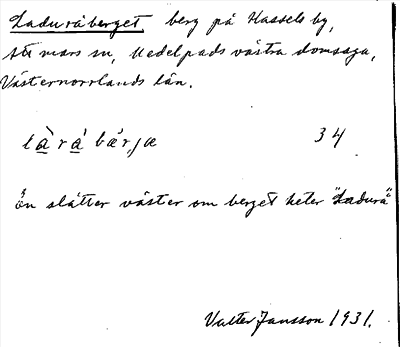 Laduråberget, berg på Hassels by,
Attmars sn, Medelpads västra domsaga,
Västernorrlands län.
34
än slåtter väster om berget heter "Ladurå"
Valter Jansson 1931.